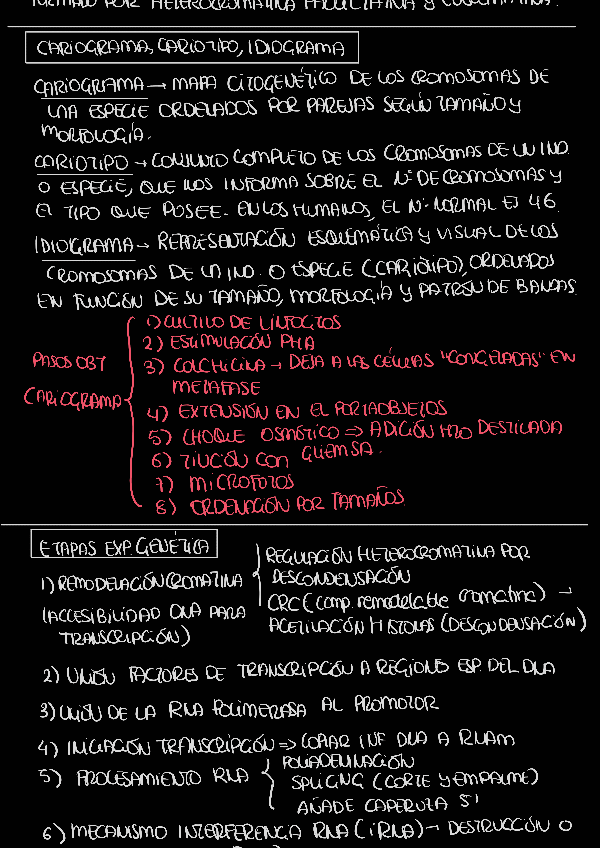 FORMADO POR HETEROCROMATINA FACULTATIVA Y CONSTITUTIVA.
CARIOGRAMA, CARIOTIPO, IDIOGRAMA
CARIOGRAMA → MAPA CITOGENÉTICO DE LOS CROMOSOMAS DE
UNA ESPECIE ORDENADOS POR PAREJAS SEGÚN TAMAÑO Y
MORFOLOGÍA.
CARIOTIPO → CONJUNTO COMPLETO DE LOS CROMOSOMAS DE UN IND.
O ESPECIE, QUE NOS INFORMA SOBRE EL Nº DE CROMOSOMAS Y
EL TIPO QUE POSEE. EN LOS HUMANOS, EL Nº NORMAL ES 46.
IDIOGRAMA → REPRESENTACIÓN ESQUEMÁTICA Y VISUAL DE LOS
CROMOSOMAS DE UN IND. O ESPECIE (CARIOTIPO), ORDENADOS
EN FUNCIÓN DE SU TAMAÑO, MORFOLOGÍA Y PATRÓN DE BANDAS.
PASOS OBT
CARIOGRAMA
1) CULTIVO DE LINFOCITOS
2) ESTIMULACIÓN PHA
3) COLCHICINA → DEJA A LAS CÉLULAS "CONGELADAS" EN
METAFASE
4) EXTENSIÓN EN EL PORTAOBJETOS
5) CHOQUE OSMÓTICO => ADICIÓN H2O DESTILADA
6) TINCIÓN CON GUEMSA.
7) MICROFOTOS
8) ORDENACIÓN POR TAMAÑOS.
ETAPAS EXP. GENÉTICA
1) REMODELACIÓN CROMATINA
(ACCESIBILIDAD DNA PARA
TRANSCRIPCIÓN)
REGULACIÓN HETEROCROMATINA POR
DESCONDENSACIÓN
CRC (comp. remodelable cromatina) →
ACETILACIÓN HISTONAS (DESCONDENSACIÓN)
2) UNIÓN FACTORES DE TRANSCRIPCIÓN A REGIONES ESP. DEL DNA
3) UNIÓN DE LA RNA POLIMERASA AL PROMOTOR
4) INICIACIÓN TRANSCRIPCIÓN => COPIAR INF DNA A RNAm
5) PROCESAMIENTO RNA
POLIADENILACIÓN
SPLICING (CORTE Y EMPALME)
AÑADE CAPERUZA 5'
6) MECANISMO INTERFERENCIA RNA (iRNA) → DESTRUCCIÓN O